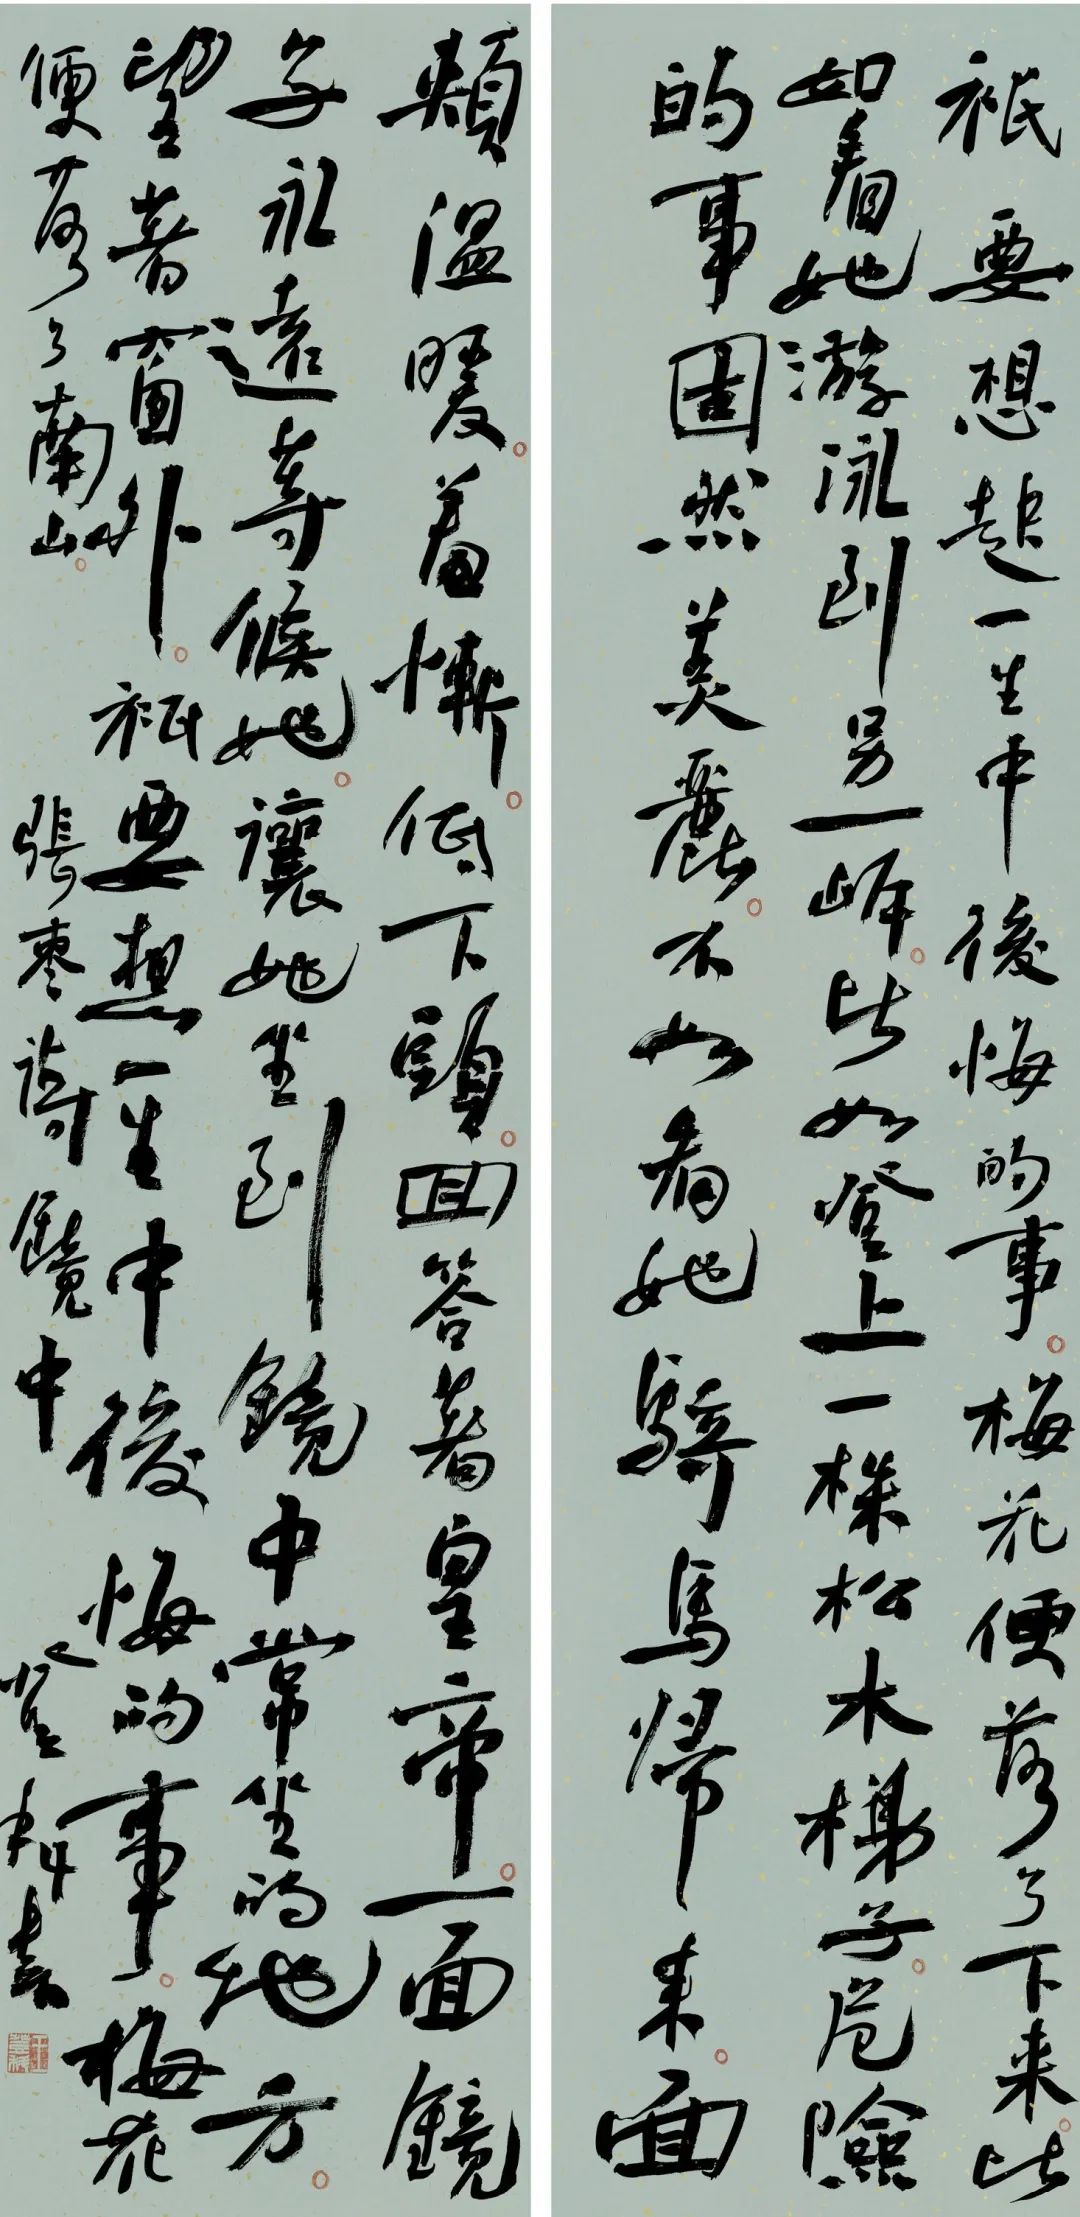 祇要想起一生中後悔的事。梅花便落了下来。比
如看她游泳到另一岸。比如登上一株松木梯子。危險
的事固然美麗。不如看她騎馬歸来。面
頰温暖。羞慚。低下頭。回答着皇帝。一面鏡
子永遠等候她。讓她坐到鏡中常坐的地方。
望着窗外。祇要想一生中後悔的事。梅花
便落了南山。 張棗詩鏡中 登科書